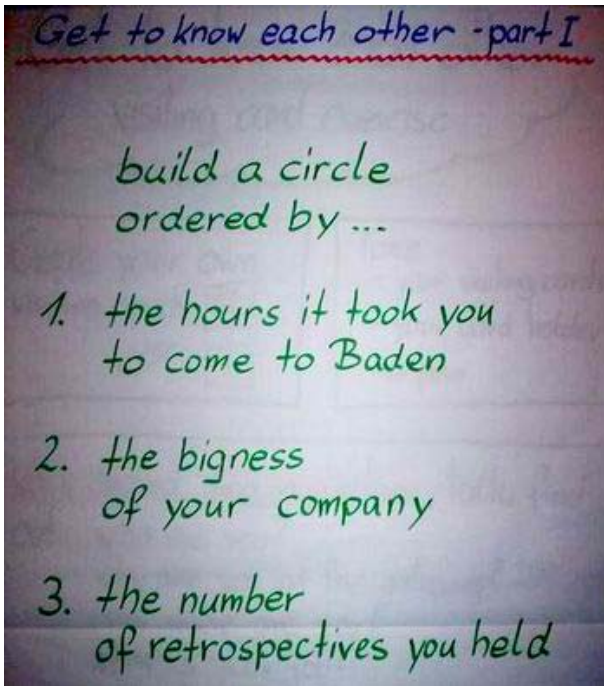 Get to know each other - part I
build a circle
ordered by ...
1. the hours it took you
to come to Baden
2. the bigness
of your company
3. the number
of retrospectives you held